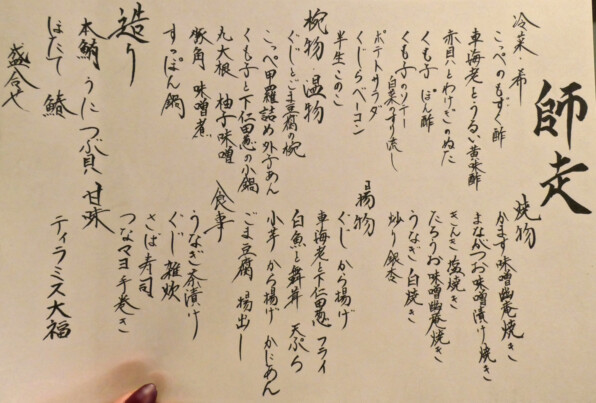 師走
冷菜・希
こっぺのもずく酢
車海老とうるい黄味酢
赤貝とわけぎのぬた
くも子 ぽん酢
くも子のソテー
白菜のすり流し
ポテトサラダ
くじらベーコン
半生このこ
椀物 温物
ぐじとごま豆腐の椀
こっぺ甲羅詰め外子あん
くも子と下仁田葱の小鍋
丸大根 柚子味噌
豚角 味噌煮
すっぽん鍋
造り
本鮪 うに つぶ貝
ほたて 鰆
盛合せ
焼物
かます味噌幽庵焼き
まながつお味噌漬け焼き
きんき塩焼き
たちうお味噌幽庵焼き
うなぎ 白焼き
炒り銀杏
揚物
ぐじ から揚げ
車海老と下仁田葱 フライ
白魚と舞茸 天ぷら
小芋 から揚げ かにあん
ごま豆腐 揚出し
食事
うなぎ茶漬け
ぐじ 雑炊
さば寿司
つなマヨ手巻き
甘味
ティラミス大福